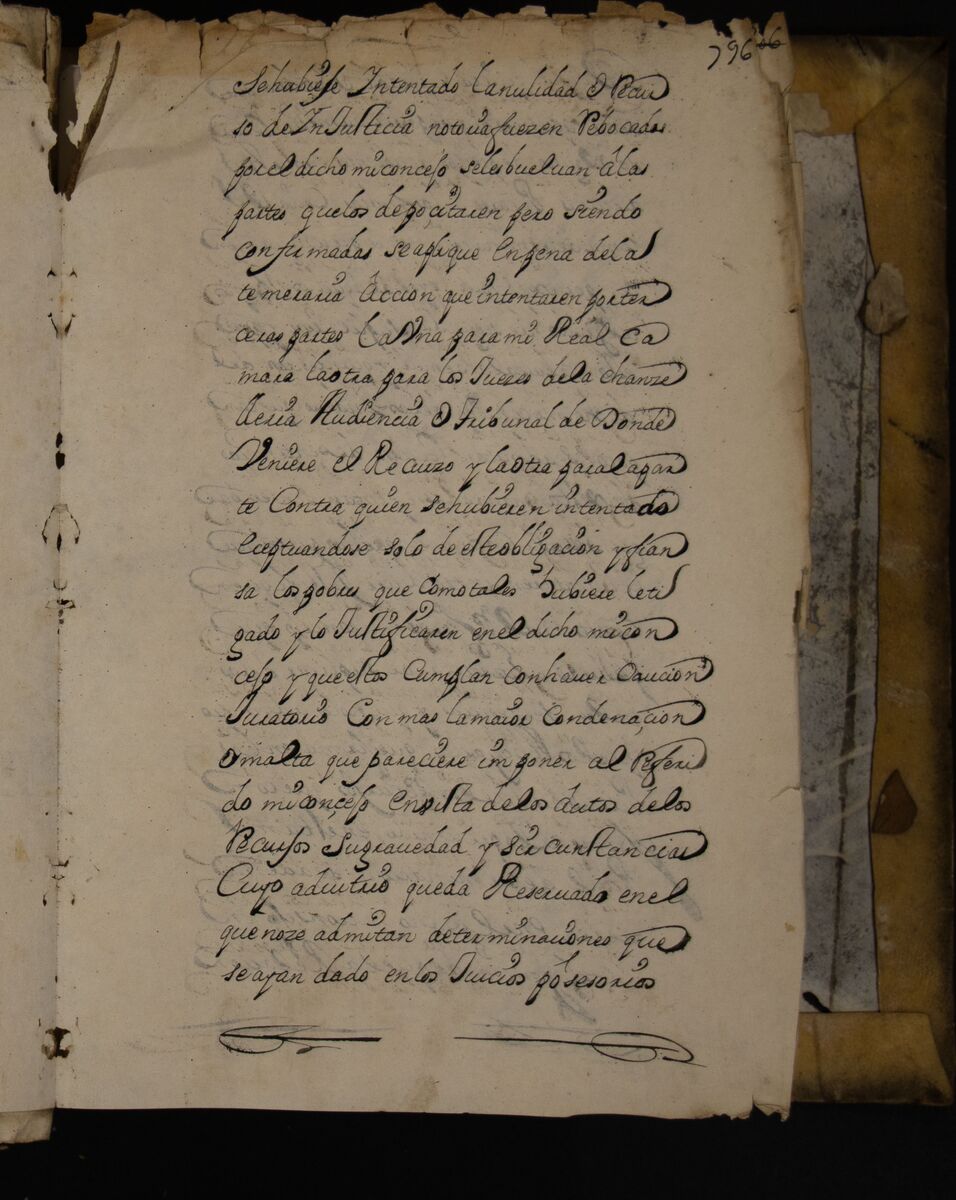 796 06
Sehubiese Intentado lanulidad o Recur
so de InJusticia notoria fuezen Rebocadas
por el dicho mi conceso selesbueluan â las
partes quelos depocitaren pero siendo
confirmadas se aplique en pena dela
temeraria Accion que intentaren por ter
ceras partes la Una para mi Real Ca
mara laotra para los Jueces dela chanze
lleria Audiencia o Tribunal de Donde
Veniere el Recurzo y laotra para la par
te Contra quien sehubieren intentado
eceptuandose solo de esteobligacion y fian
sa los pobres que como tales hubiere leti
gado y lo Justificaren en el dicho mi con
ceso y que estos Cumplan con haver Caucion
Juratorio Con mas lamaior condenacion
o multa que pareciere imponer al Referi
do mi conceso en vista delos Autos delos
Recursos Sugrauedad y sircunstancias
Cuyo advitrio queda Reseruado en el
que no ze admitan determinaciones que
se ayan dado en los Juicios posesorios